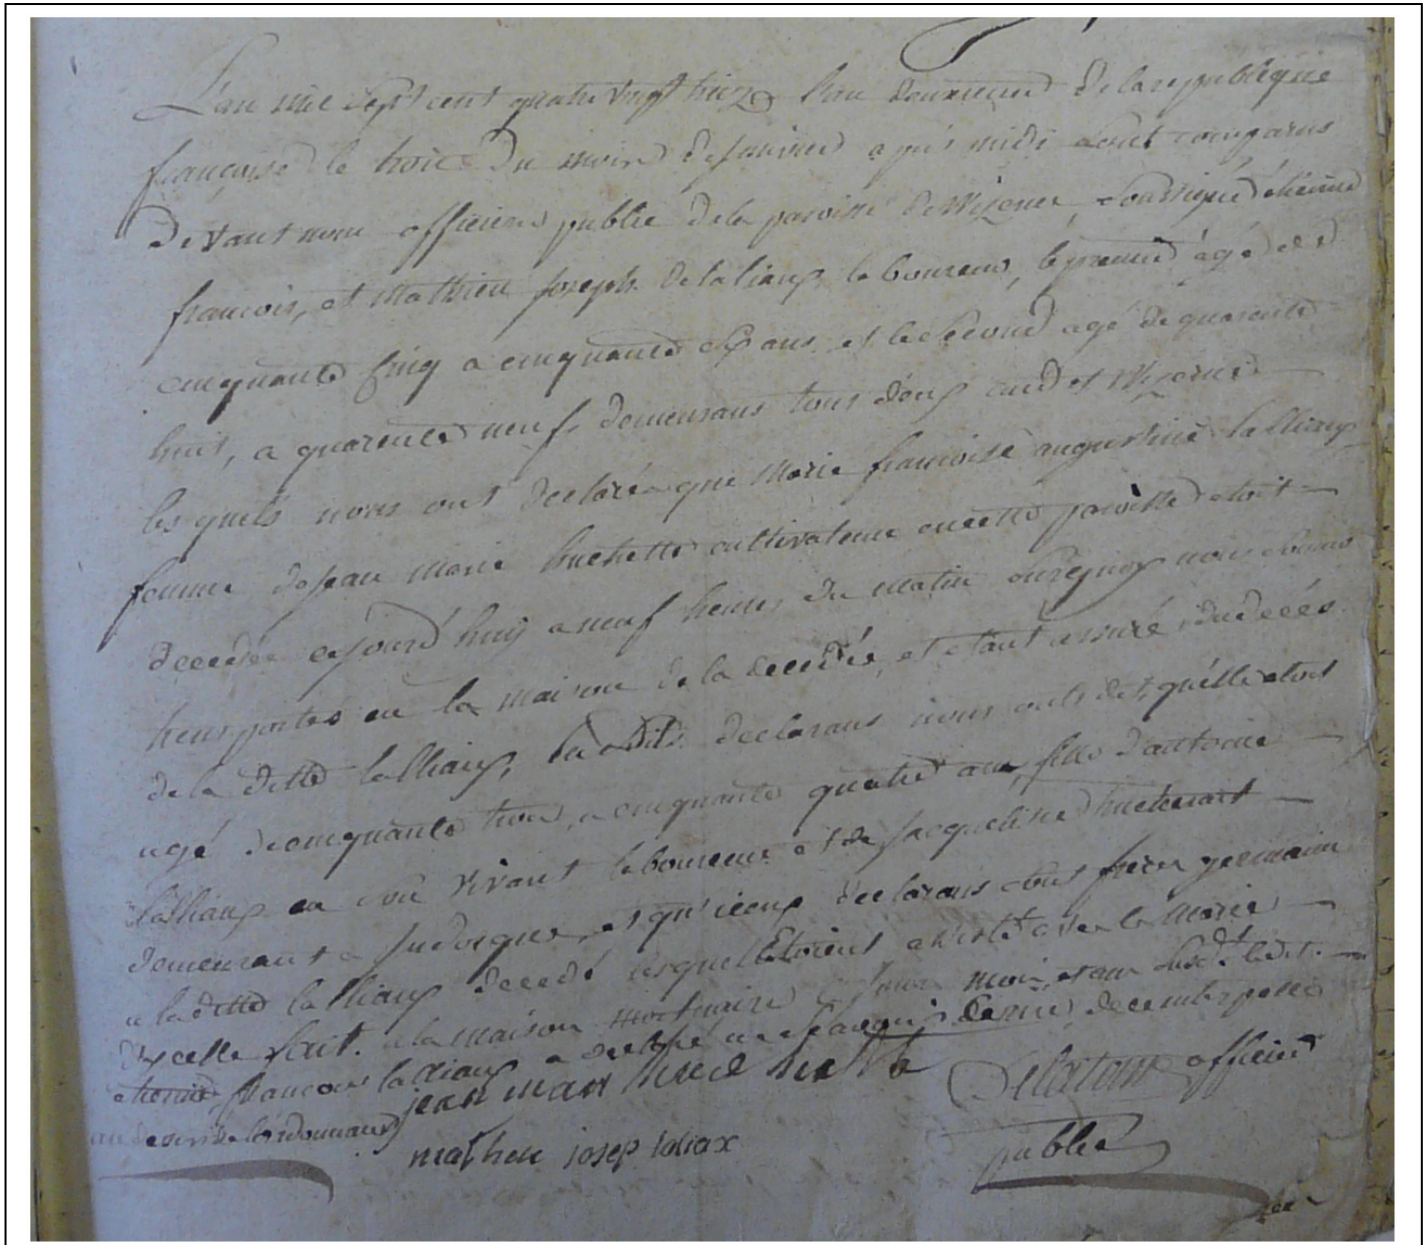 L'an mil sept cent quatre vingt treize l'an deuxieme de la republique
françoise le trois du mois de après midi sont comparus
devant nous officiers public de la paroisse de Wizerne soussigné etienne
francois, et Mathieu joseph delaliaux laboureurs, le premier agé de
cinquante cinq a cinquante six ans et le second agé de quarente
huit, a quarente neuf, demeurans tous deux aud et Wizerne
lesquels nous ont declaré que Marie francoise augustine lalliaux
femme de jean marie huchette cultivateur en cette paroisse etoit
decedée cejourd'huy a neuf heures du matin surquoy nous sommes
transportés en la maison de la decedée, et etant assuré du decés
de la ditte lalliaux, lesdits declarans nous ont dit qu'elle etoit
agé de cinquante trois, a cinquante quatre ans, fille d'antoine
lalliaux en son vivant laboureur et de jacqueline
demeurant a, et qu'iceux declarans sont freres germains
a la ditte lalliaux decedé lesquels avec le Marie
d'ycelle fait. a la maison mortuaire les jour mois, et an susdt ledit
etienne francois lalliaux a declaré ne scavoir decembre passé
au desir de l'ordonnance
jean mari huchette
Delatour officier
mathieu josep laliax
public